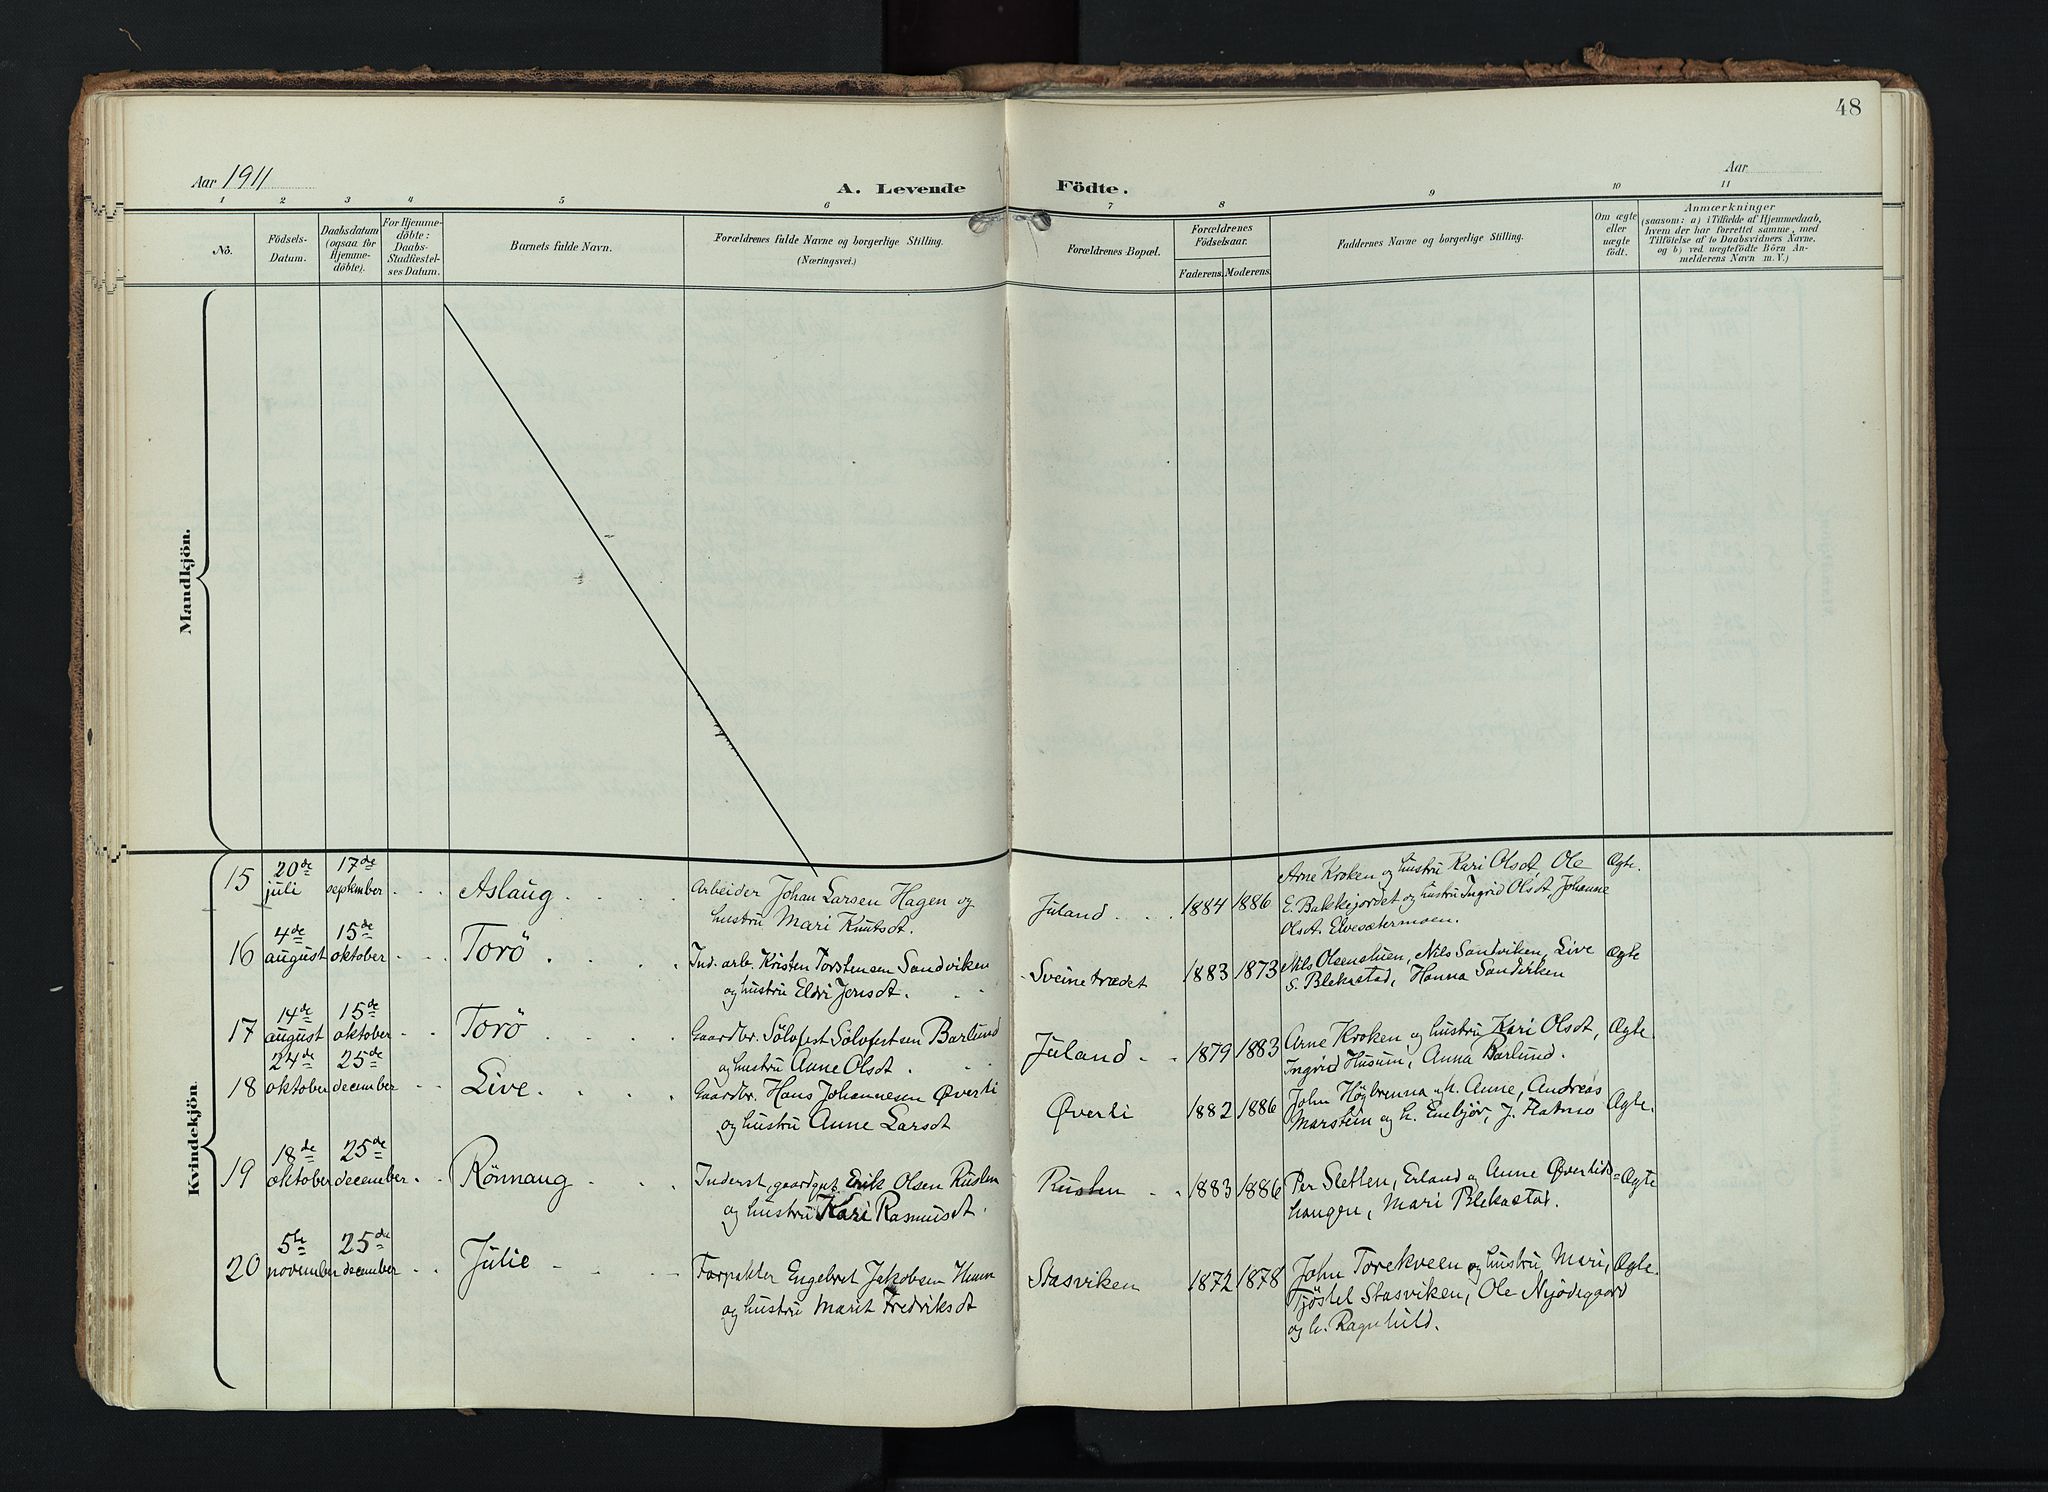 48
Aar 1911
A. Levende
Födte.
Aar
1 2 3 4 5 6 7 8 9 10 11
Nö.
Födsels-
Datum.
Daabsdatum
(ogsaa for
Hjemme-
döbte).
For Hjemme-
döbte:
Daabs-
Stadfæstel-
ses Datum.
Barnets fulde Navn.
Forældrenes fulde Navne og borgerlige Stilling.
(Næringsvei.)
Forældrenes Bopæl.
Forældrenes
Födselsaar.
Faderens. Moderens.
Faddernes Navne og borgerlige Stilling.
Om ægte
eller
uægte
födt.
Anmærkninger
(saasom: a) i Tilfælde af Hjemmedaab,
hvem der har forrettet samme, med
Tilföielse af to Daabsvidners Navne,
og b) ved uægtefödte Börn An-
melderens Navn m. V.)
Mandkjön.
Kvindekjön.
15
20de
juli
17de
september
Aslaug
Arbeider Johan Larsen Hagen og
hustru Mari Knutsdt.
Juland
1884 1886
Arne Kroken og hustru Kari Olsdt, Ole
E. Bakkejordet og hustru Ingrid Olsdt. Johanne
Olsdt. Elvesætermoen.
Ægte.
16
4de
august
15de
oktober
Torö
Ind. arb. Kristen Torstensen Sandviken
og hustru Eldri Jensdt.
Sveinetrædet
1883 1873
Nils Olsenstuen, Nils Sandviken, Live
S. Blekastad, Hanna Sandviken
Ægte
17
14de
august
15de
oktober
Torö
Gaardbr. Sölvfest Sölvfestsen Barlund
og hustru Anne Olsdt.
Juland
1879 1883
Arne Kroken og hustru Kari Olsdt,
Ingrid Husum, Anna Barlund.
Ægte.
18
24de
oktober
25de
december
Live
Gaardbr. Hans Johannesen Øverli
og hustru Anne Larsdt
Øverli
1882 1886
John Högbrenna og h. Anne, Andreas
Marstein og h. Embjør, J. Flatmo
Ægte.
19
18de
oktober
25de
december
Rönnaug
Inderst, gaardgut Erik Olsen Rusten
og hustru Kari Rasmusdt.
Rusten
1883 1886
Per Sletten, Erland og Anne Øverlid=
haugen, Mari Blekastad.
Ægte
20
5te
november
25de
december
Julie
Forpakter Engebret Jakobsen
og hustru Marit Fredriksdt
Stasviken
1872 1878
John Torekveen og hustru Mari,
Tjöstel Stasviken, Ole Nyödegaard
og h. Ragnhild.
Ægte.